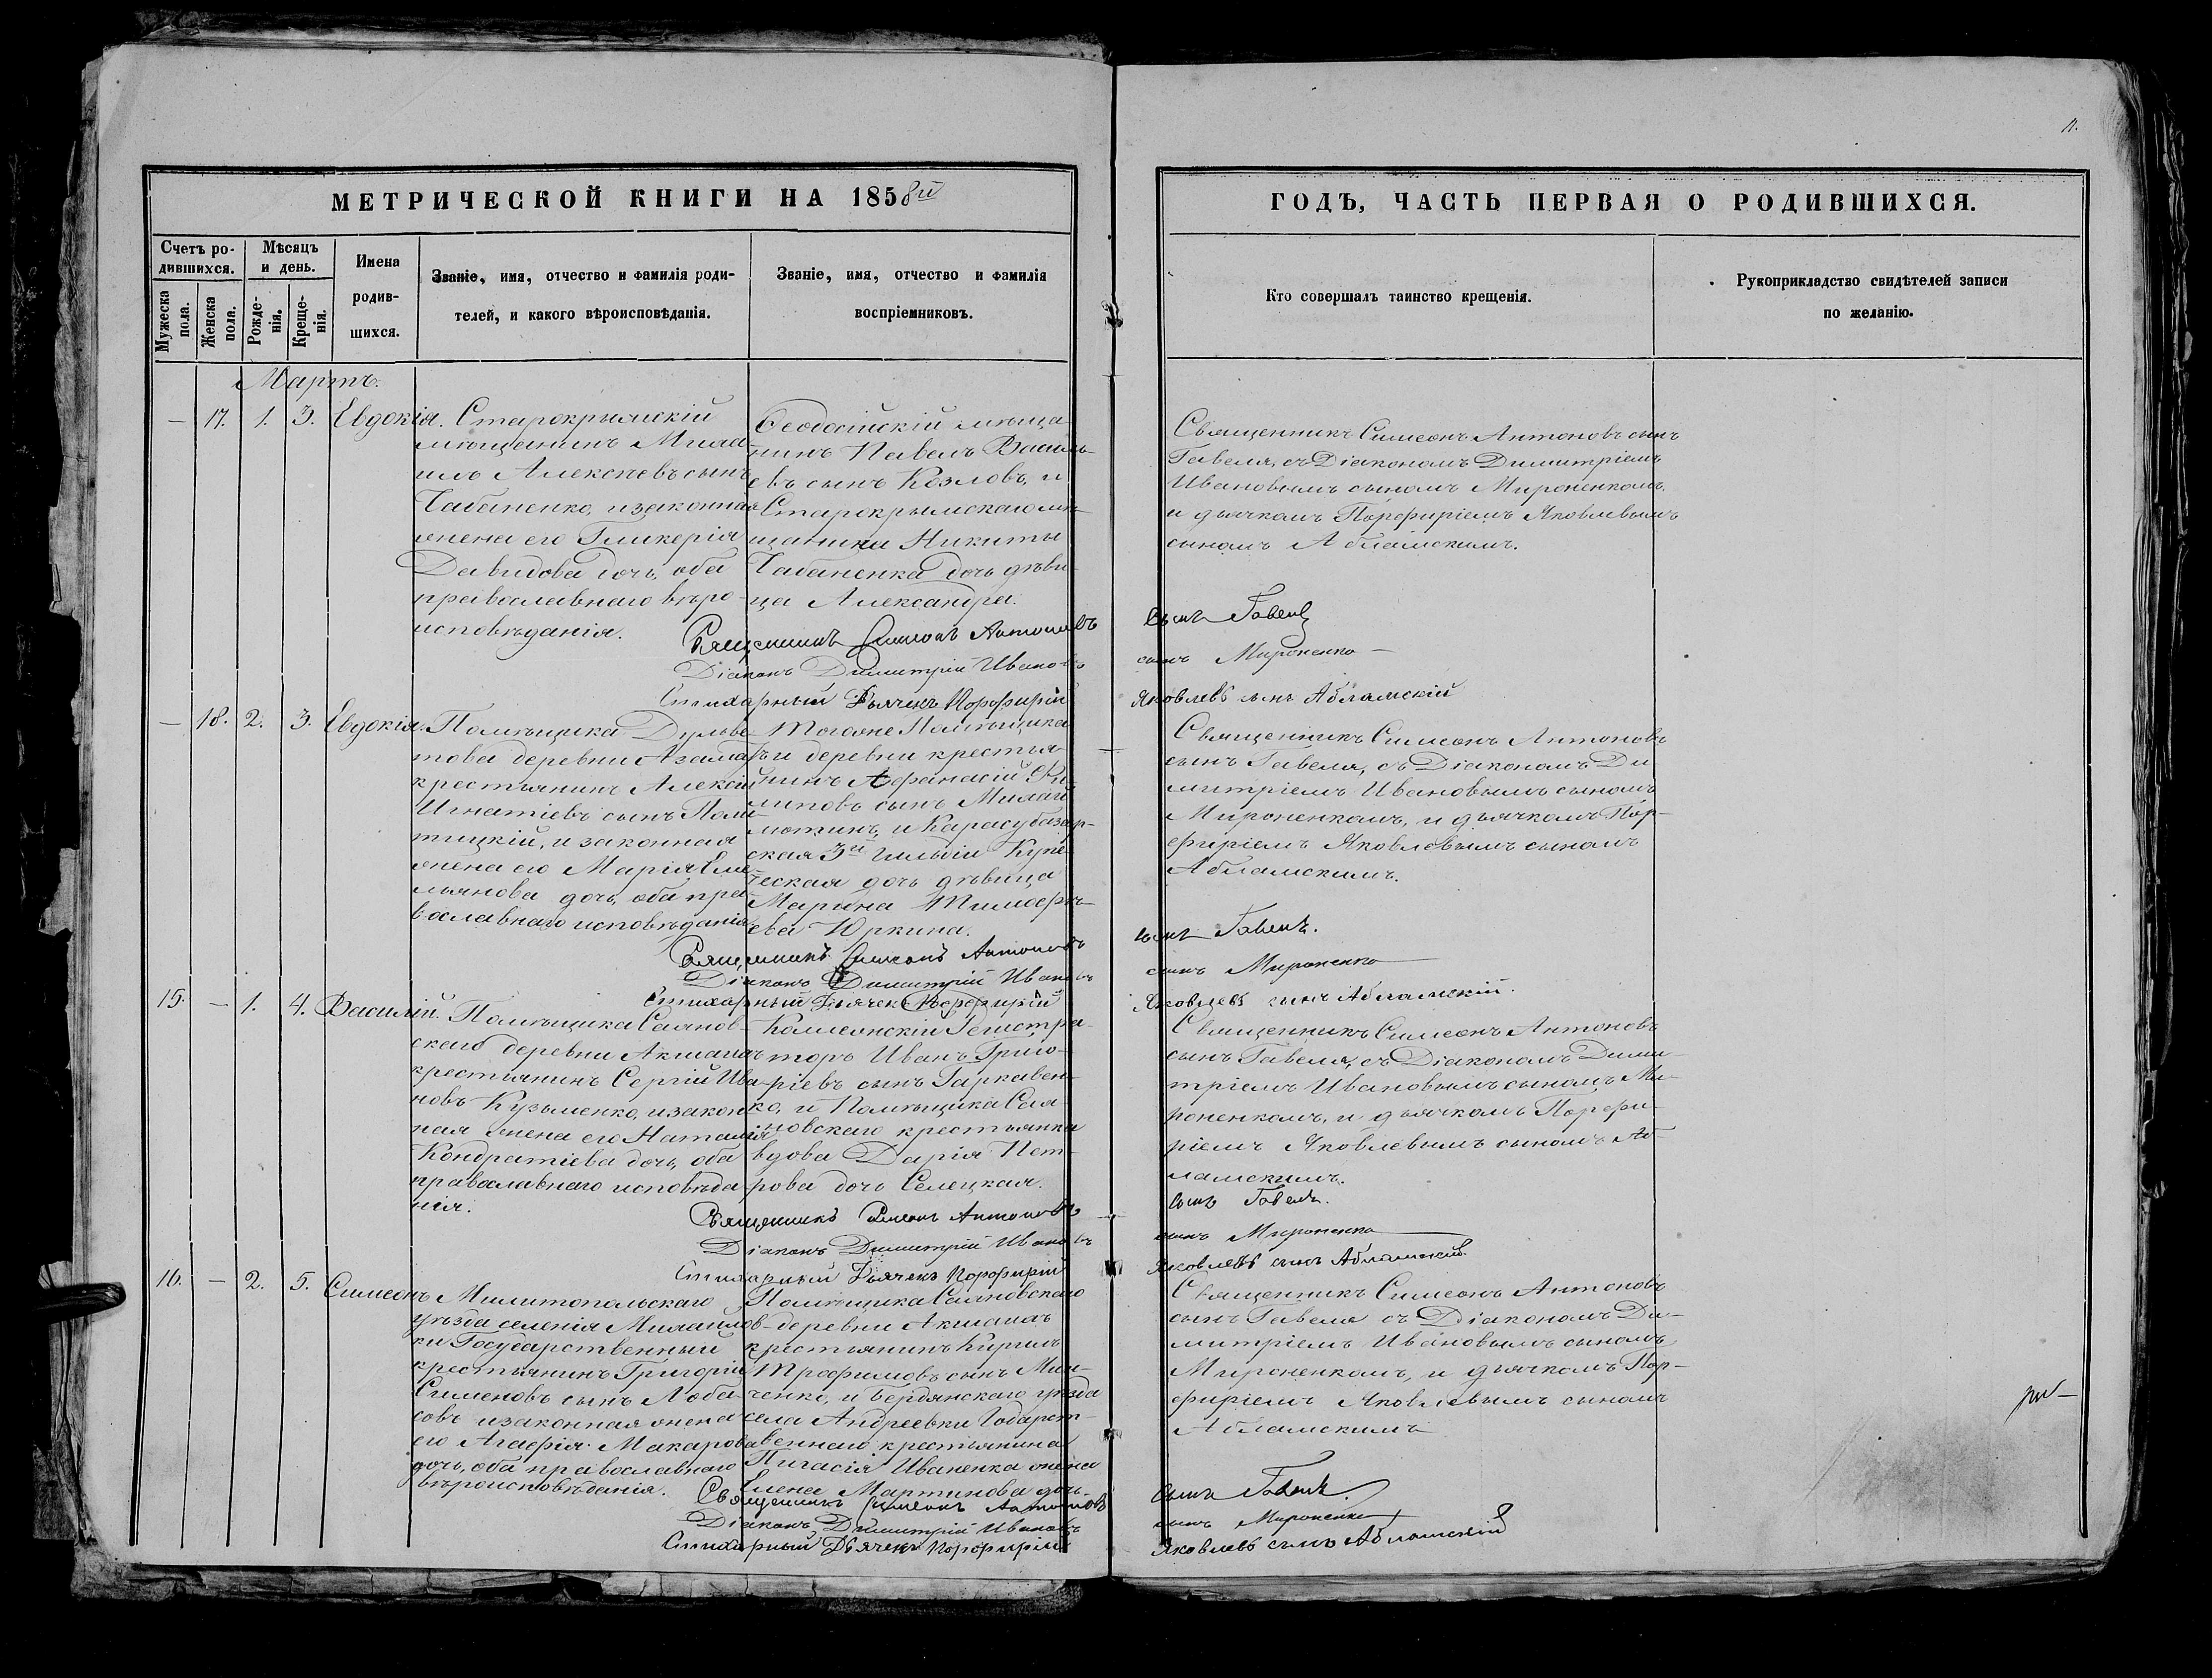 МЕТРИЧЕСКОЙ КНИГИ НА 1858й
Счетъ ро-
дившихся.
Мужеска
пола.
Женска
пола.
Мѣсяцъ
и день.
Рожде-
нія.
Креще-
нія.
Имена
родив-
шихся.
Званіе, имя, отчество и фамилія роди-
телей, и какого вѣроисповѣданія.
Званіе, имя, отчество и фамилія
воспріемниковъ.
Мартъ.
— 17. 1. 3. Евдокія.
Старокрымскій
мѣщанинъ Миха-
илъ Алексѣевъ сынъ
Чабаненко, и законная
жена его Гликерія
Давидова дочь, оба
православнаго вѣро-
исповѣданія.
Ѳеодосійскій мѣща-
нинъ Павелъ Василь-
евъ сынъ Козловъ, и
Старокрымскаго мѣ-
щанина Никиты
Чабаненка дочь дѣви-
ца Александра.
Священникъ Симеонъ Антоновъ
Діаконъ Димитрій Ивановъ
Стихарный Дьячекъ Порфирій
— 18. 2. 3. Евдокія.
Помѣщика Дульве-
това деревни Азама
крестьянинъ Алексій
Игнатіевъ сынъ Поли-
тицкій, и законная
жена его Марія Еме-
льянова дочь, оба пра-
вославнаго исповѣданія
Тогоже Помѣщика
и деревни крестья-
нинъ Афанасій Фи-
липовъ сынъ
и Карасубазар-
ская 3й гильдіи Купе-
ческая дочь дѣвица
Марина Тимофѣ-
ева Юркина.
Священникъ Симеонъ Антоновъ
Діаконъ Димитрій Ивановъ
Стихарный Дьячек Порфирій
15. — 1. 4. Василій.
Помѣщика Саянов-
скаго деревни Акмана
крестьянинъ Сергій Ива-
новъ Кузьменко, и закон-
ная жена его Наталія
Кондратіева дочь, оба
православнаго исповѣда-
нія.
Коллежскій Регистра-
торъ Иванъ Григо-
ріевъ сынъ Гаркавен-
ко, и Помѣщика Сая-
новскаго крестьянка
вдова Дарія Пет-
рова дочь Селецкая.
Священникъ Симеонъ Антоновъ
Діаконъ Димитрій Ивановъ
Стихарный Дьячекъ Порфирій
16. — 2. 5. Симеонъ
Милитопольскаго
уѣзда селенія Михайлов-
ки Государственный
крестьянинъ Григорій
Сименовъ сынъ Лоба-
совъ и законная жена
его Агафія Макарова
дочь, оба православнаго
вѣроисповѣданія.
Помѣщика Саяновскаго
деревни Акмана
крестьянинъ Кирилъ
Трофимовъ сынъ Мин-
ченко, и Бердянскаго уѣзда
села Андреевки Годарст-
веннаго крестьянина
Пигасія Иваненка жена
Елена Мартинова дочь.
Священникъ Симеонъ Антоновъ
Діаконъ Димитрій Ивановъ
Стихарный Дьячекъ Порфирій
11.
ГОДЪ, ЧАСТЬ ПЕРВАЯ О РОДИВШИХСЯ.
Кто совершалъ таинство крещенія.
Рукоприкладство свидѣтелей записи
по желанію.
Священникъ Симеонъ Антоновъ сынъ
Гавеля, съ Діакономъ Димитріемъ
Ивановымъ сыномъ Мироненкомъ,
и дьячкомъ Порфиріемъ Яковлевымъ
сыномъ Абламскимъ.
сынъ Гавель
сынъ Мироненко —
Яковлевъ сынъ Абламскій
Священникъ Симеонъ Антоновъ
сынъ Гавеля, съ Діакономъ Ди
митріемъ Ивановымъ сыномъ
Мироненкомъ, и дьячкомъ Пор-
фиріемъ Яковлевымъ сыномъ
Абламскимъ.
сынъ Гавель.
сынъ Мироненко
Яковлевъ сынъ Абламскій.
Священникъ Симеонъ Антоновъ
сынъ Гавеля, съ Діакономъ Дими-
тріемъ Ивановымъ сыномъ Ми-
роненкомъ, и дьячкомъ Порфи-
ріемъ Яковлевымъ сыномъ Аб-
ламскимъ.
сынъ Гавель.
сынъ Мироненко
Яковлевъ сынъ Абламскій.
Священникъ Симеонъ Антоновъ
сынъ Гавеля съ Діакономъ Ди-
митріемъ Ивановымъ сыномъ
Мироненкомъ, и дьячкомъ Пор-
фиріемъ Яковлевымъ сыномъ
Абламскимъ
сынъ Гавель.
сынъ Мироненко
Яковлевъ сынъ Абламскій